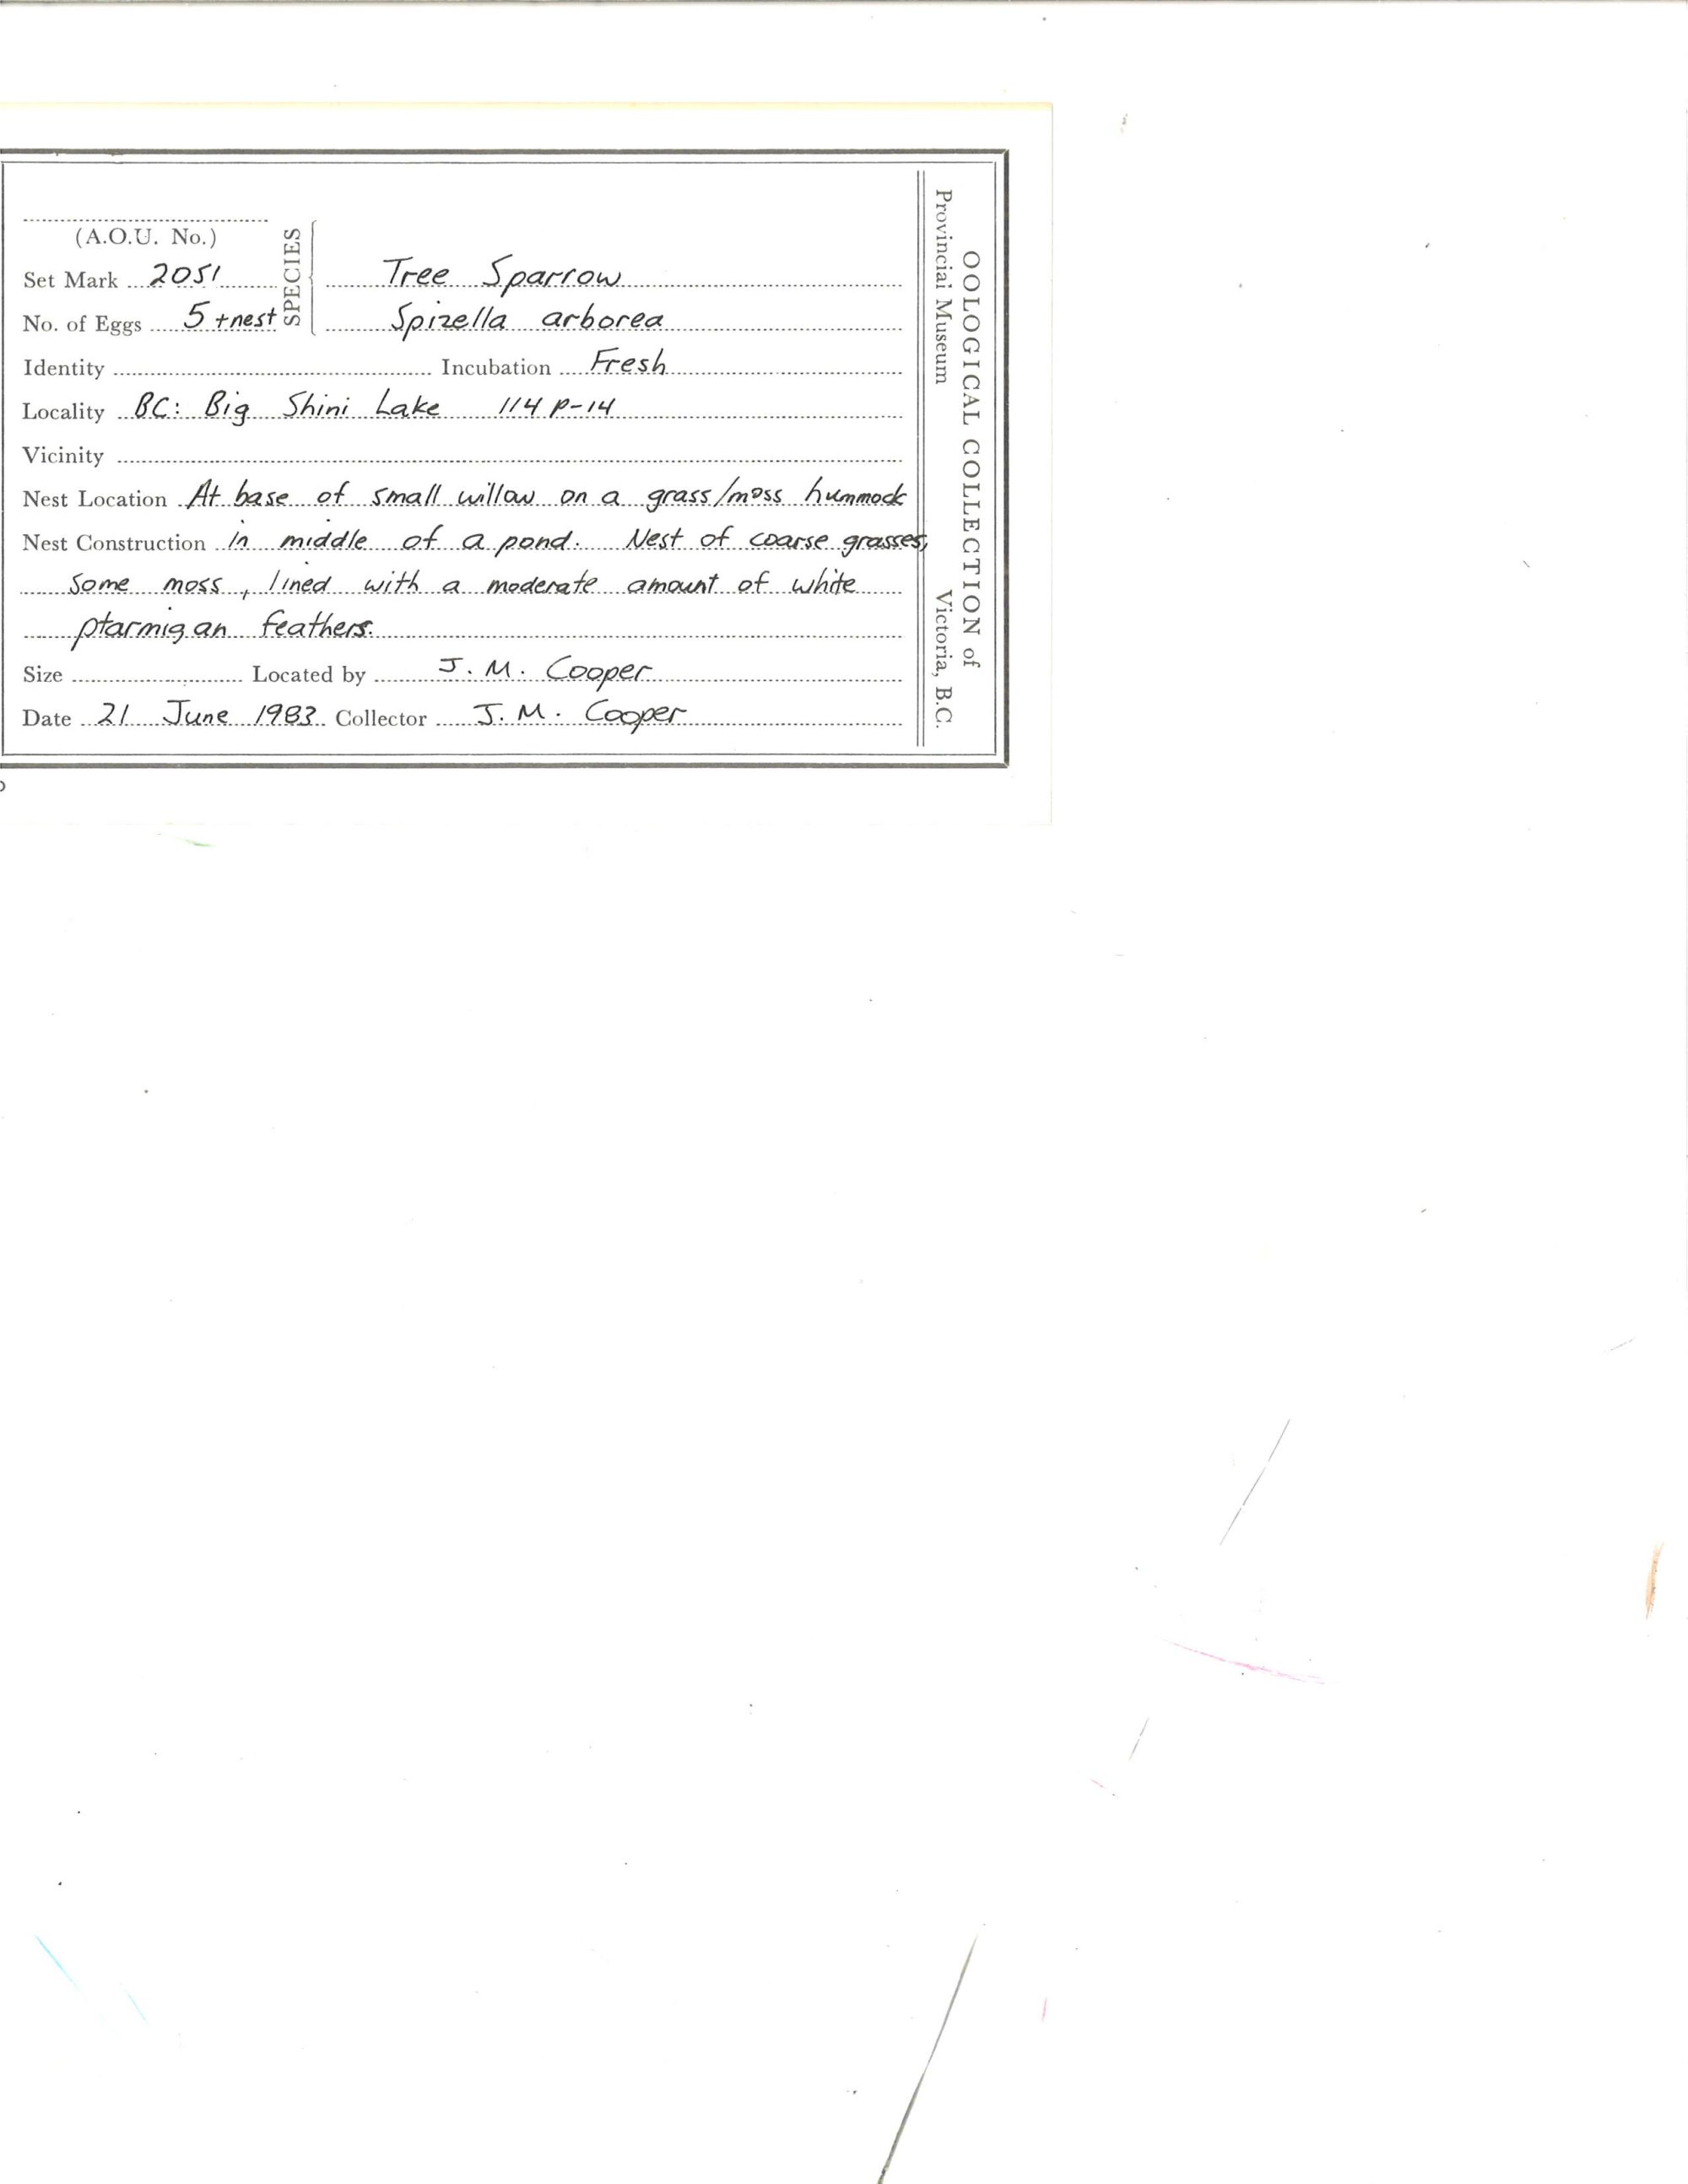 (A.O.U. No.)
SPECIES
Set Mark 2051 Tree Sparrow
No. of Eggs 5 + nest Spizella arborea
Identity Incubation Fresh
Locality BC: Big Shini Lake 114 P-14
Vicinity
Nest Location At base of small willow on a grass/moss hummock
Nest Construction in middle of a pond. Nest of coarse grasses,
some moss, lined with a moderate amount of white
ptarmigan feathers.
Size Located by J. M. Cooper
Date 21 June 1983 Collector J. M. Cooper
OOLOGICAL COLLECTION of
Provincial Museum Victoria, B.C.